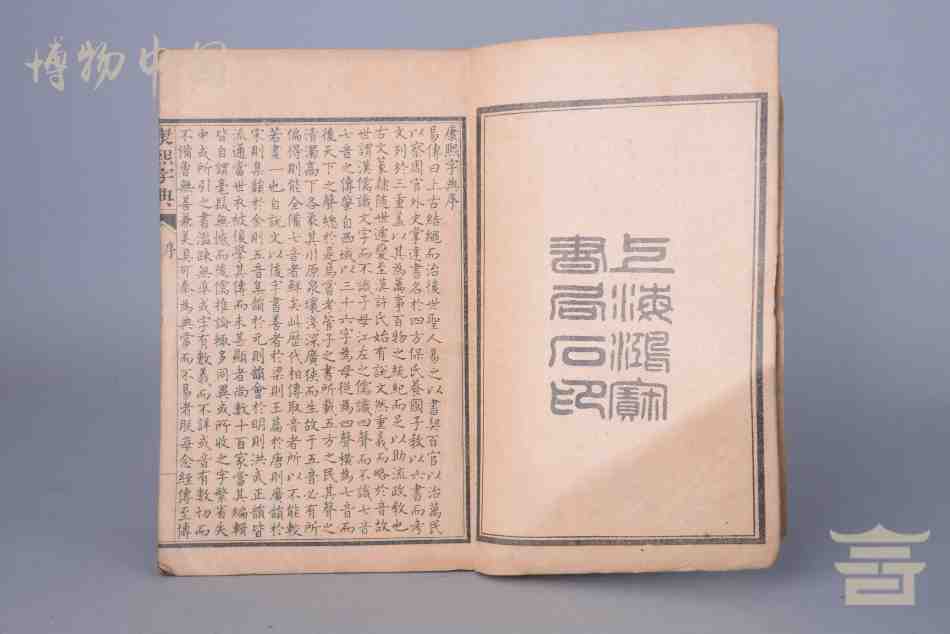 上海鴻寶
書局石印
康熙字典序
易傳曰上古結繩而治後世聖人易之以書契百官以治萬民
以察周官外史掌達書名於四方保氏養國子教以六書而考
文列於三重蓋以其為萬事百物之統紀而足以助流政教也
古文篆隸隨世遞變至漢許氏始有說文然重義而略於音故
世謂漢儒識文字而不識子母江左之儒識四聲而不識七音
七音之傳肇自西域以三十六字為母從為四聲橫為七音而
後天下之聲總於是焉嘗考管子之書所載五方之民其聲之
清濁高下各象其川原泉壤淺深廣狹而生故于五音必有所
偏得則能全備七音者鮮矣此歷代相傳取音者所以不能較
若畫一也自說文以後字書善者於梁則玉篇於唐則廣韻於
宋則集韻於金則五音集韻於元則韻會於明則洪武正韻皆
流通當世衣被後學其傳而未甚顯者尚數十百家當其編輯
皆自謂毫髮無憾而後儒推論輒多同異或所收之字繁省失
中或所引之書濫疎無準或字有數義而不詳或音有數切而
不備曾無善兼美具可奉為典常而不易者朕每念經傳至博
康熙字典
序
博物中國